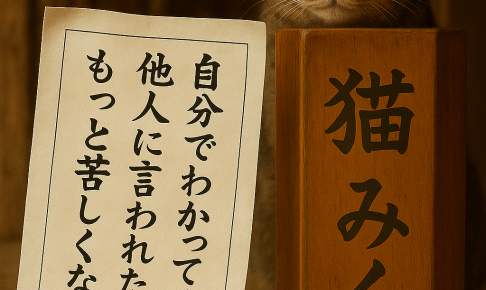 猫み
自分でわかって
他人に言われた
もっと苦しくな